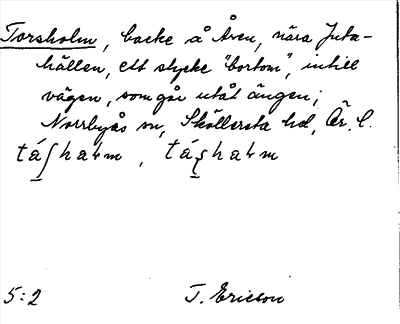 Torsholm, backe å Åren, nära Juta-
hällen, ett stycke "bortom", intill
vägen, som går utåt ängen;
Norrbyås sn, Sköllersta hd, Ör. l.
5:2 T. Ericson